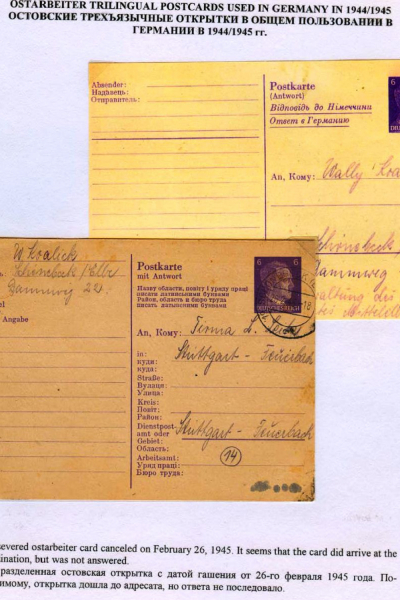 OSTARBEITER TRILINGUAL POSTCARDS USED IN GERMANY IN 1944/1945
ОСТОВСКИЕ ТРЕХЪЯЗЫЧНЫЕ ОТКРЫТКИ В ОБЩЕМ ПОЛЬЗОВАНИИ В
ГЕРМАНИИ В 1944/1945 гг.
Absender:
Надавець:
Отправитель:
Postkarte
(Antwort)
Відповідь до Німеччини
Ответ в Германию
6
An, Кому: Wally
Schönebeck
W. Kralick
Schönebeck / Elbe
Dammweg 22
Angabe
Postkarte
mit Antwort
Назву области, повіту і уряду праці
писати латинськими буквами
Район, область и бюро труда
писать латинскими буквами
6
DEUTSCHES REICH
An, Кому: Firma L.
in: Stuttgart - Feuerbach
куди:
куда:
Straße:
Вулаця:
Улица:
Kreis:
Повіт:
Район:
Dienstpost-
amt oder Stuttgart - Feuerbach
Gebiet:
Область:
Arbeitsamt:
Уряд праці:
Бюро труда:
14
severed ostarbeiter card canceled on February 26, 1945. It seems that the card did arrive at the
ination, but was not answered.
разделенная остовская открытка с датой гашения от 26-го февраля 1945 года. По-
имому, открытка дошла до адресата, но ответа не последовало.